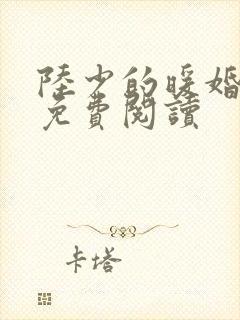 陸少的暖婚
免費閱讀
卡塔